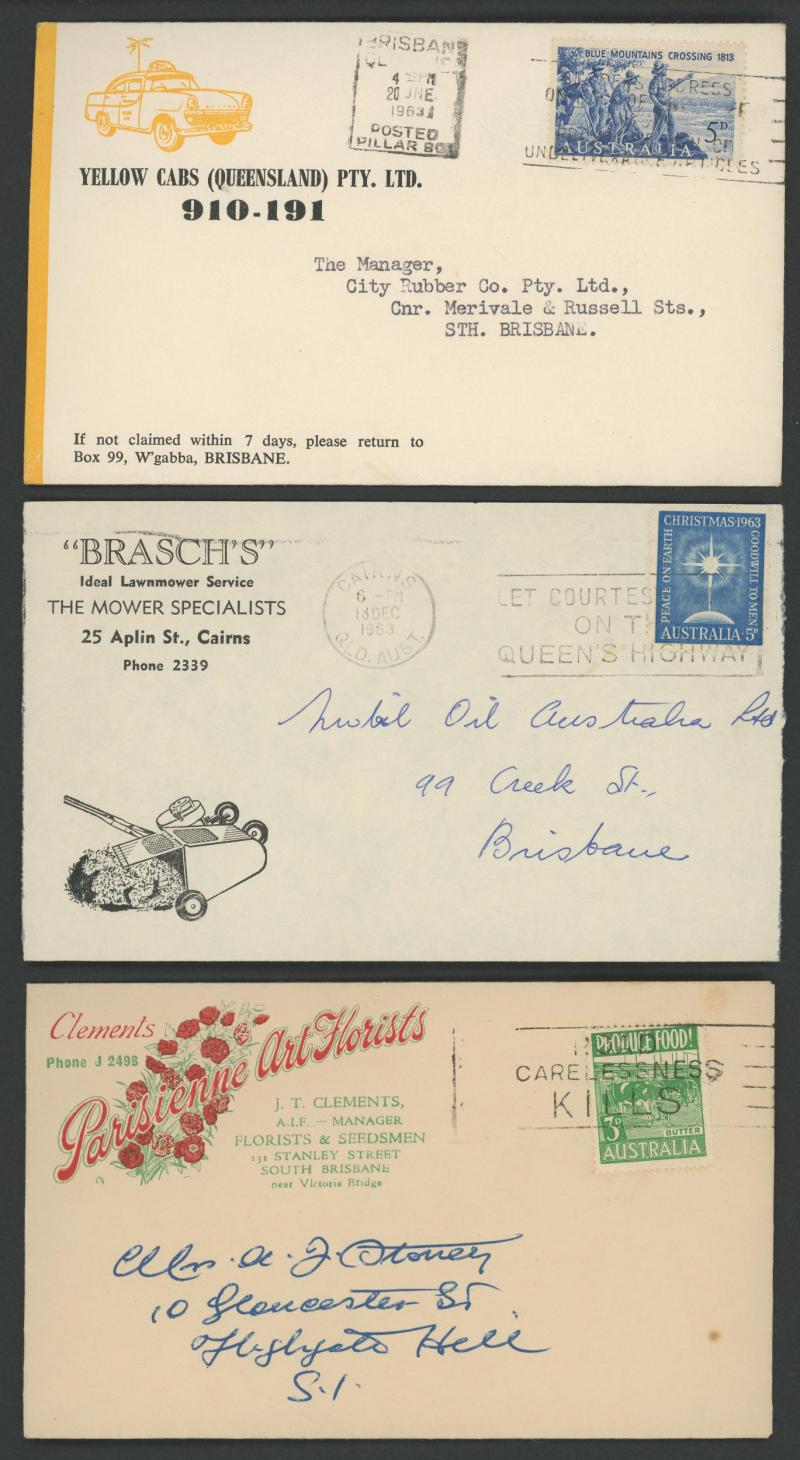 YELLOW CABS (QUEENSLAND) PTY. LTD.
910-191
BRISBAN
4 PM
20 JNE
1963
POSTED
PILLAR BO
BLUE MOUNTAINS CROSSING 1813
5D
AUSTRALIA
The Manager,
City Rubber Co. Pty. Ltd.,
Cnr. Merivale & Russell Sts.,
STH. BRISBANE.
If not claimed within 7 days, please return to
Box 99, W'gabba, BRISBANE.
"BRASCH'S"
Ideal Lawnmower Service
THE MOWER SPECIALISTS
25 Aplin St., Cairns
Phone 2339
CAIRNS
6 - PM
18 DEC
1963
QLD. AUST.
LET COURTES
ON TH
QUEEN'S HIGHWAY
CHRISTMAS·1963
PEACE ON EARTH
GOODWILL TO MEN
AUSTRALIA·5D
Mobil Oil Australia Ltd
99 Creek St.,
Brisbane
Clements
Phone J 2498
Parisienne Art Florists
J. T. CLEMENTS,
A.I.F. — MANAGER
FLORISTS & SEEDSMEN
131 STANLEY STREET
SOUTH BRISBANE
near Victoria Bridge
CARELESSNESS
KILLS
PRODUCE FOOD!
3D
BUTTER
AUSTRALIA
Mrs. A. J. Stoney
10 Gloucester St
Highgate Hill
S.1.